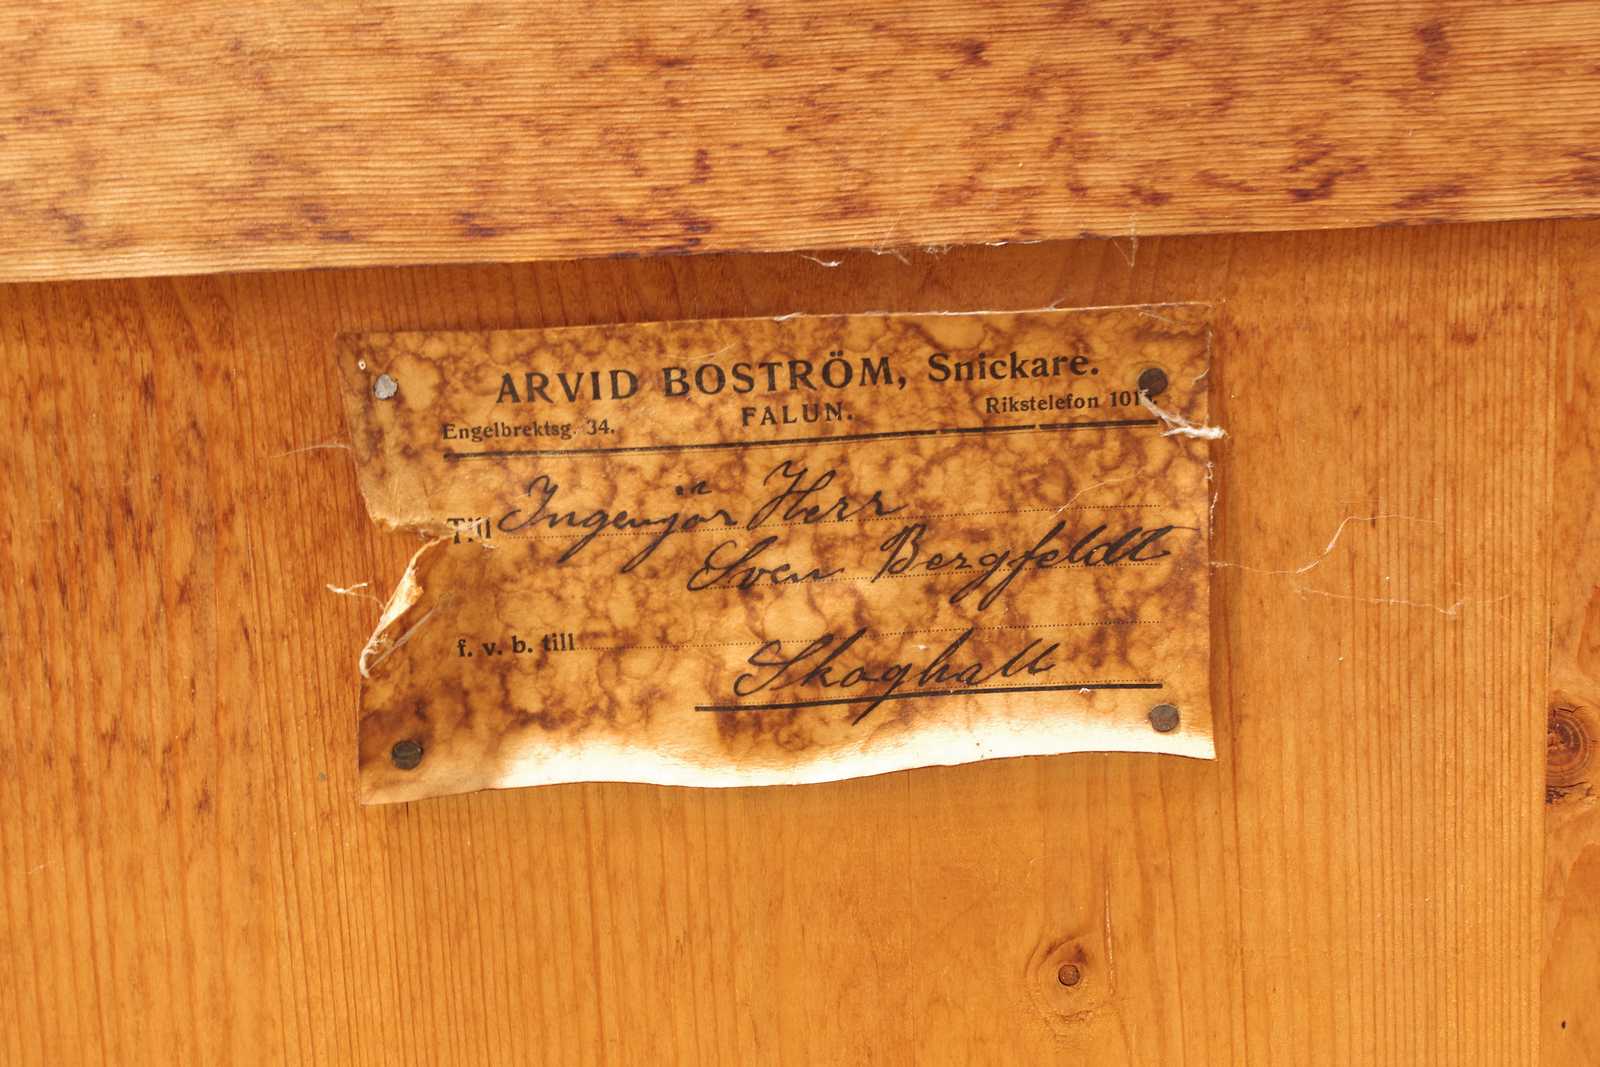 ARVID BOSTRÖM, Snickare.
FALUN.
Engelbrektsg. 34.
Rikstelefon
Till Ingenjör Herr
Sven Bergfeldt
f. v. b. till
Skoghall